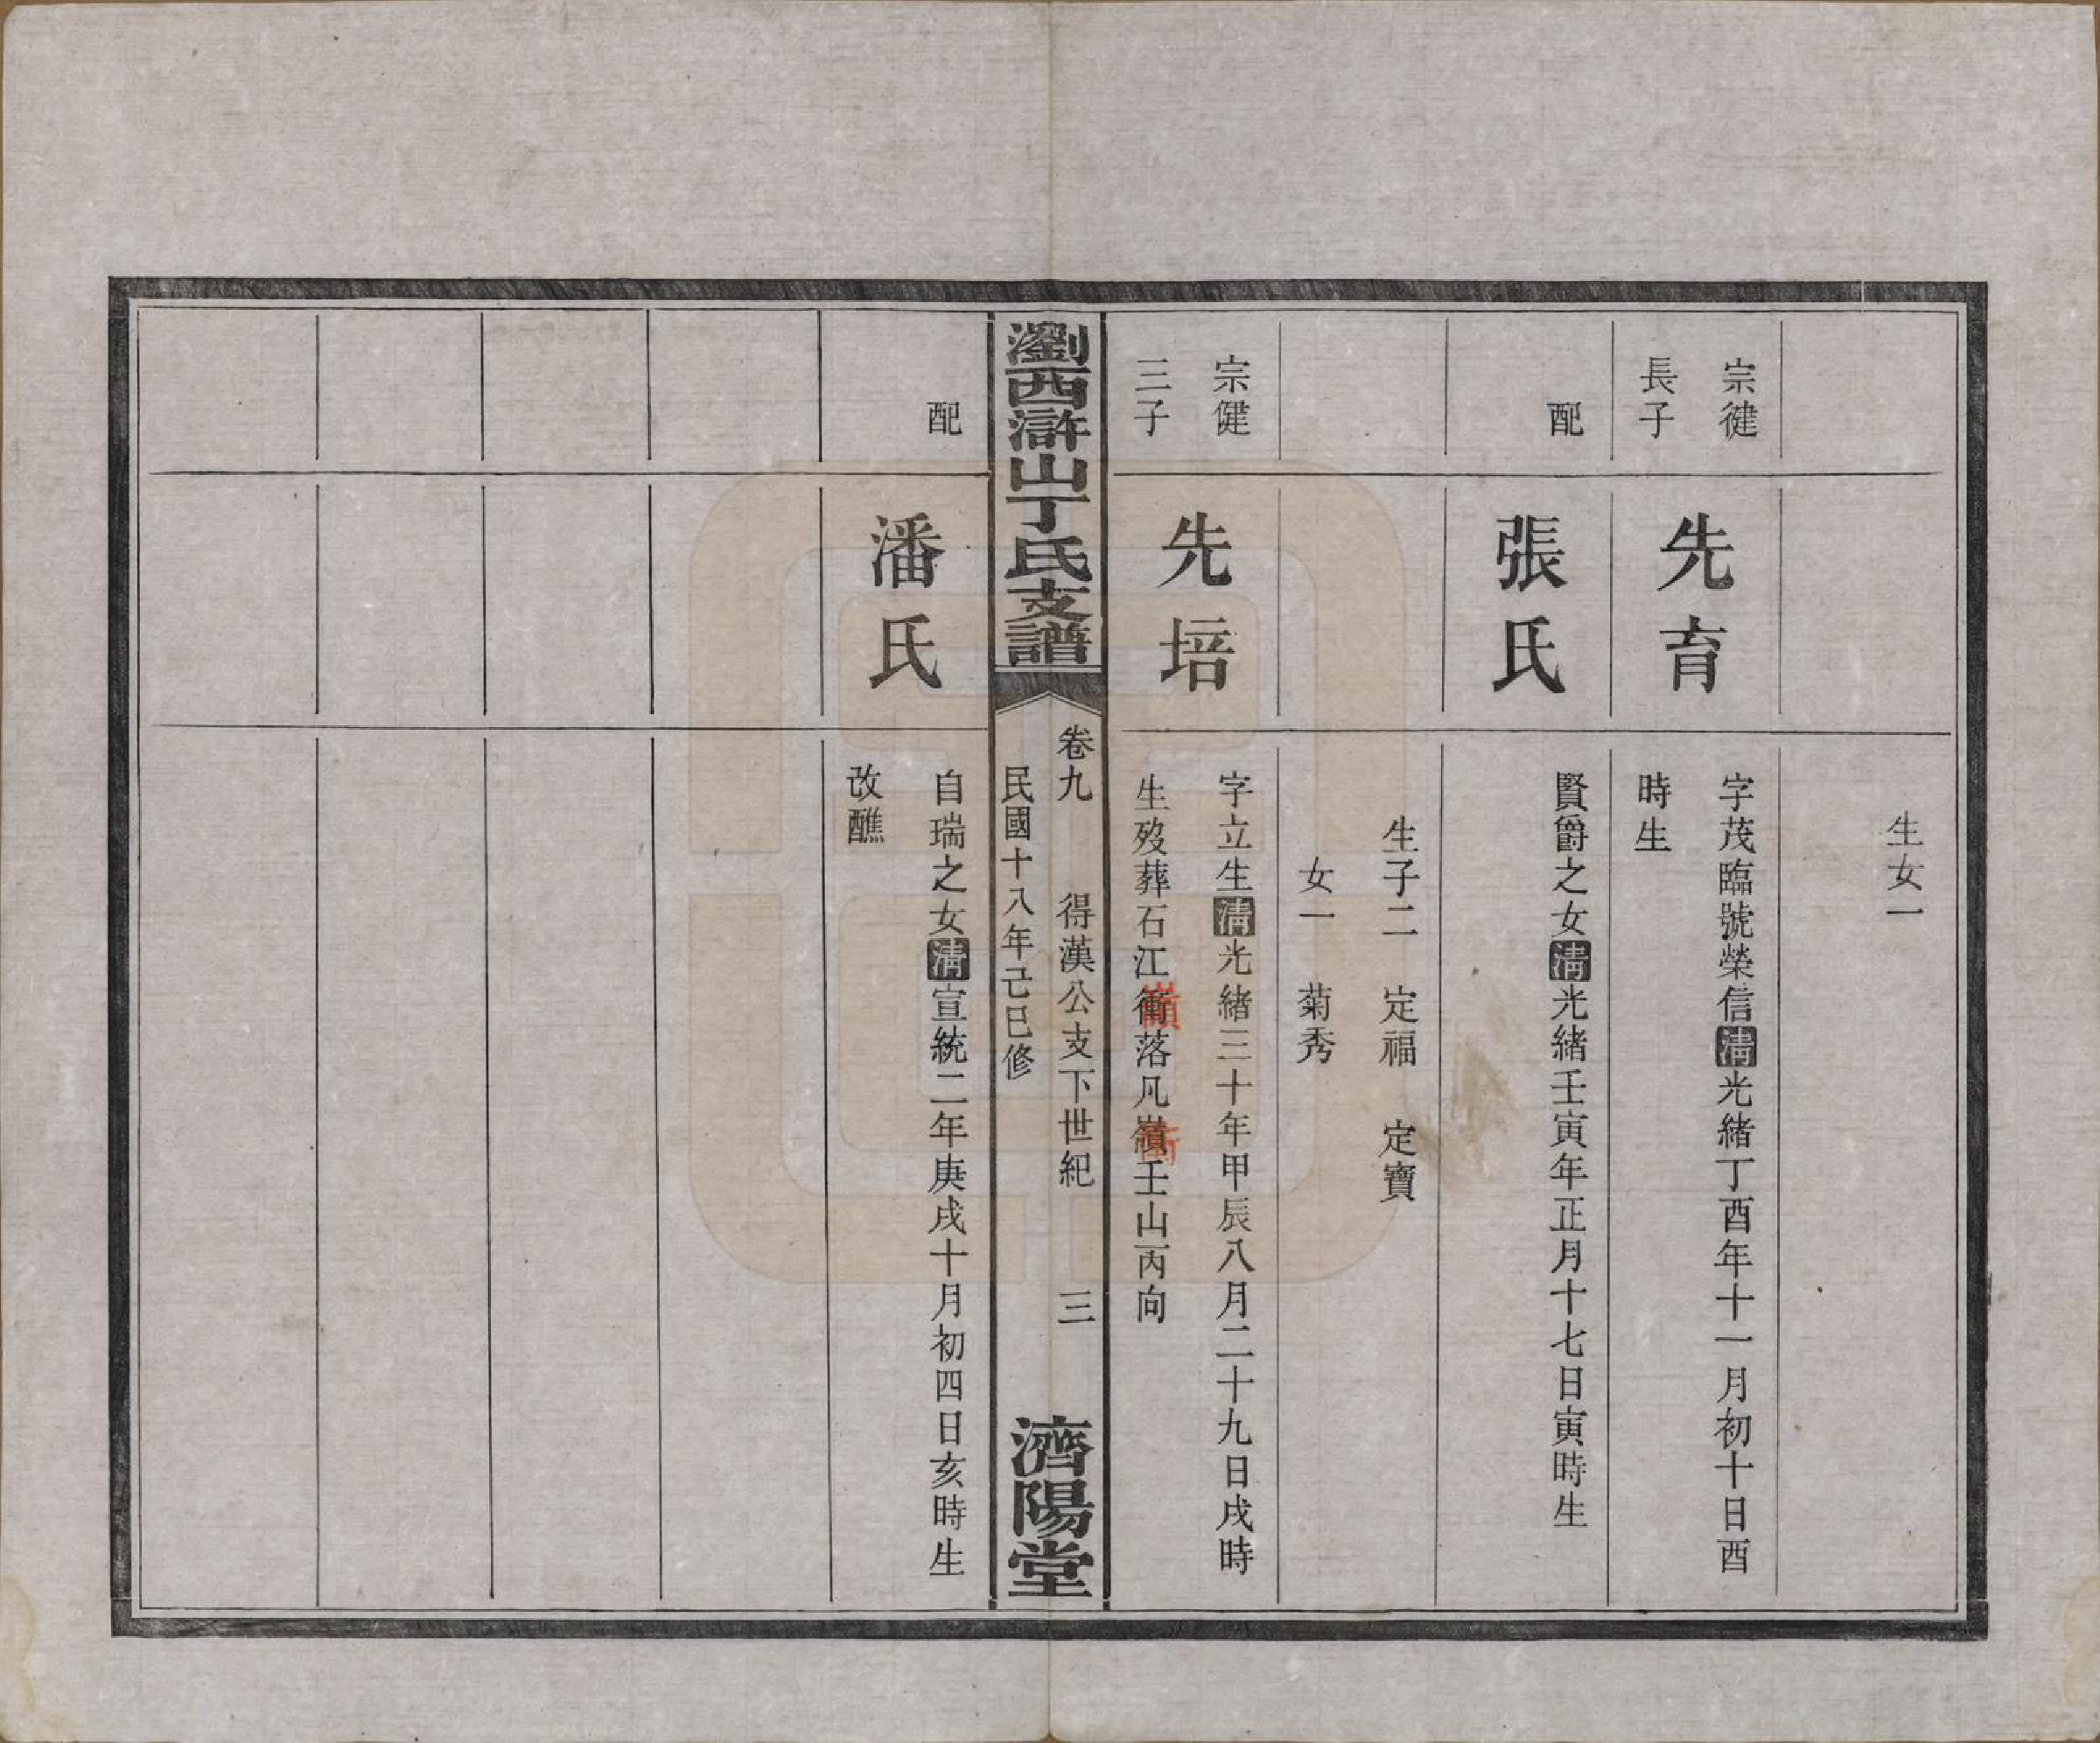 生女一
宗健
長子
先育
字茂臨號榮信清光緒丁酉年十一月初十日酉
時生
配
張氏
賢爵之女清光緒壬寅年正月十七日寅時生
生子二　定福　定寶
女一　菊秀
宗健
三子
先培
字立生清光緒三十年甲辰八月二十九日戌時
生歿葬石江衝落凡嶺壬山丙向
嶺
衝
瀏西滸山丁氏支譜
卷九　得漢公支下世紀　三
民國十八年己巳修
濟陽堂
配
潘氏
自瑞之女清宣統二年庚戌十月初四日亥時生
改醮